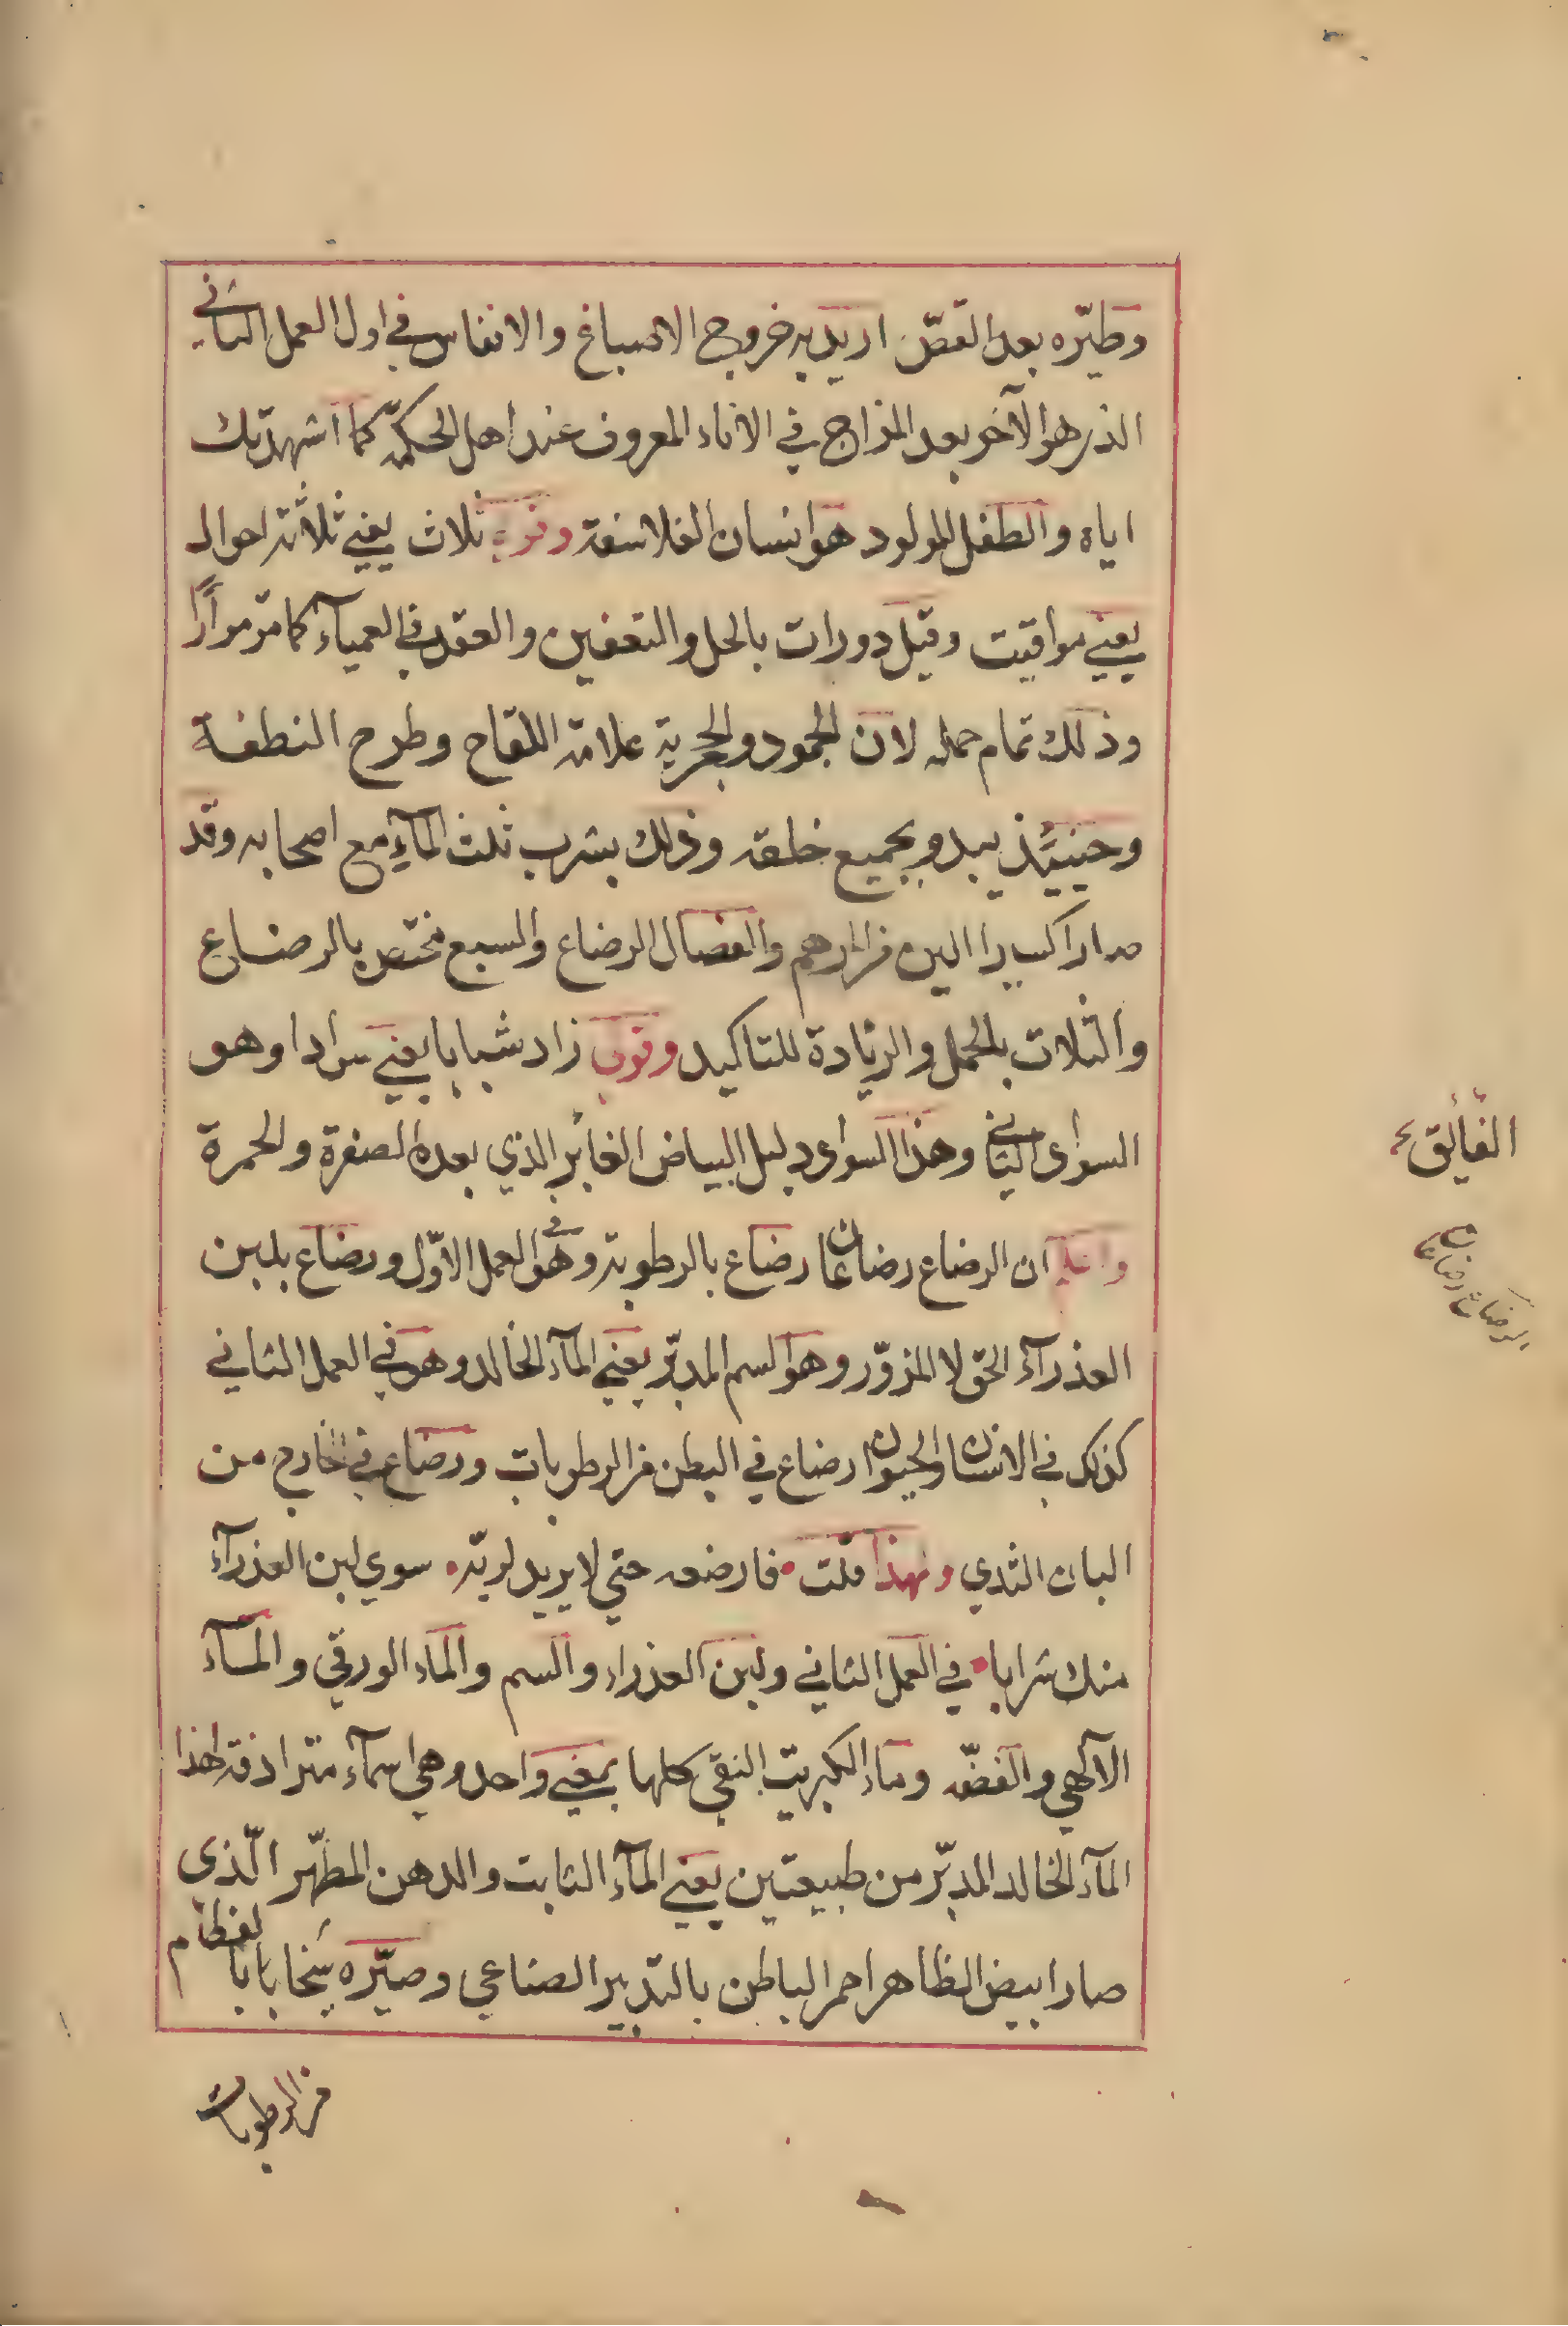 وطيّره بعد القصّ اريد به خروج الاصباغ والانفاس في اول العمل الثاني
الذي هو الآخر بعد المزاج في الاناء المعروف عند اهل الحكمة كما اشهدتك
اياه والطفل المولود هو انسان الفلاسفة وقوله ثلاث يعني ثلاثة احوال
يعني مواقيت وقيل دورات بالحل والتعفين والعقد في العمياء كما مرّ مرارًا
وذلك تمام حمله لان الجمود والحجرية علامة اللقاح وطرح النطفة
وحينئذ يبدو بجميع خلقه وذلك بشرب ثلث المآء مع اصحابه وقد
صار اكسيرا الين من نارهم والفصال الرضاع والسبع مختص بالرضاع
والثلاث بالحمل والزيادة للتاكيد وقوله زاد شبابا يعني سوادا وهو
السواد الثاني وهذا السواد دليل البياض الغائر الذي بعده الصفرة والحمرة
واعلم ان الرضاع رضاعان رضاع بالرطوبة وهو في العمل الاوّل ورضاع بلبن
العذرآء الحق لا المزوّر وهو السم المدبّر يعني المآء الخالد وهو في العمل الثاني
كذلك في الانسان والحيوان رضاع في البطن من الرطوبات ورضاع في الخارج من
البان الثدي ولهذا قلت فارضعه حتي لا يريد لريّه سوي لبن العذرآء
منك شرابا في العمل الثاني ولبن العذراء والسم والماء الورقي والمآء
الآلهي والفضّه وماء الكبريت النقي كلها بمعني واحد وهي اسمآء مترادفة لهذا
المآء الخالد المدبّر من طبيعتين يعني المآء الثابت والدهن المطهّر الّذي
صار ابيض الظاهر احمر الباطن بالتدبير الصناعي وصيّره شيخا بابا لفطام
من الرطوبات
الفايق
الرضاع رضاعان